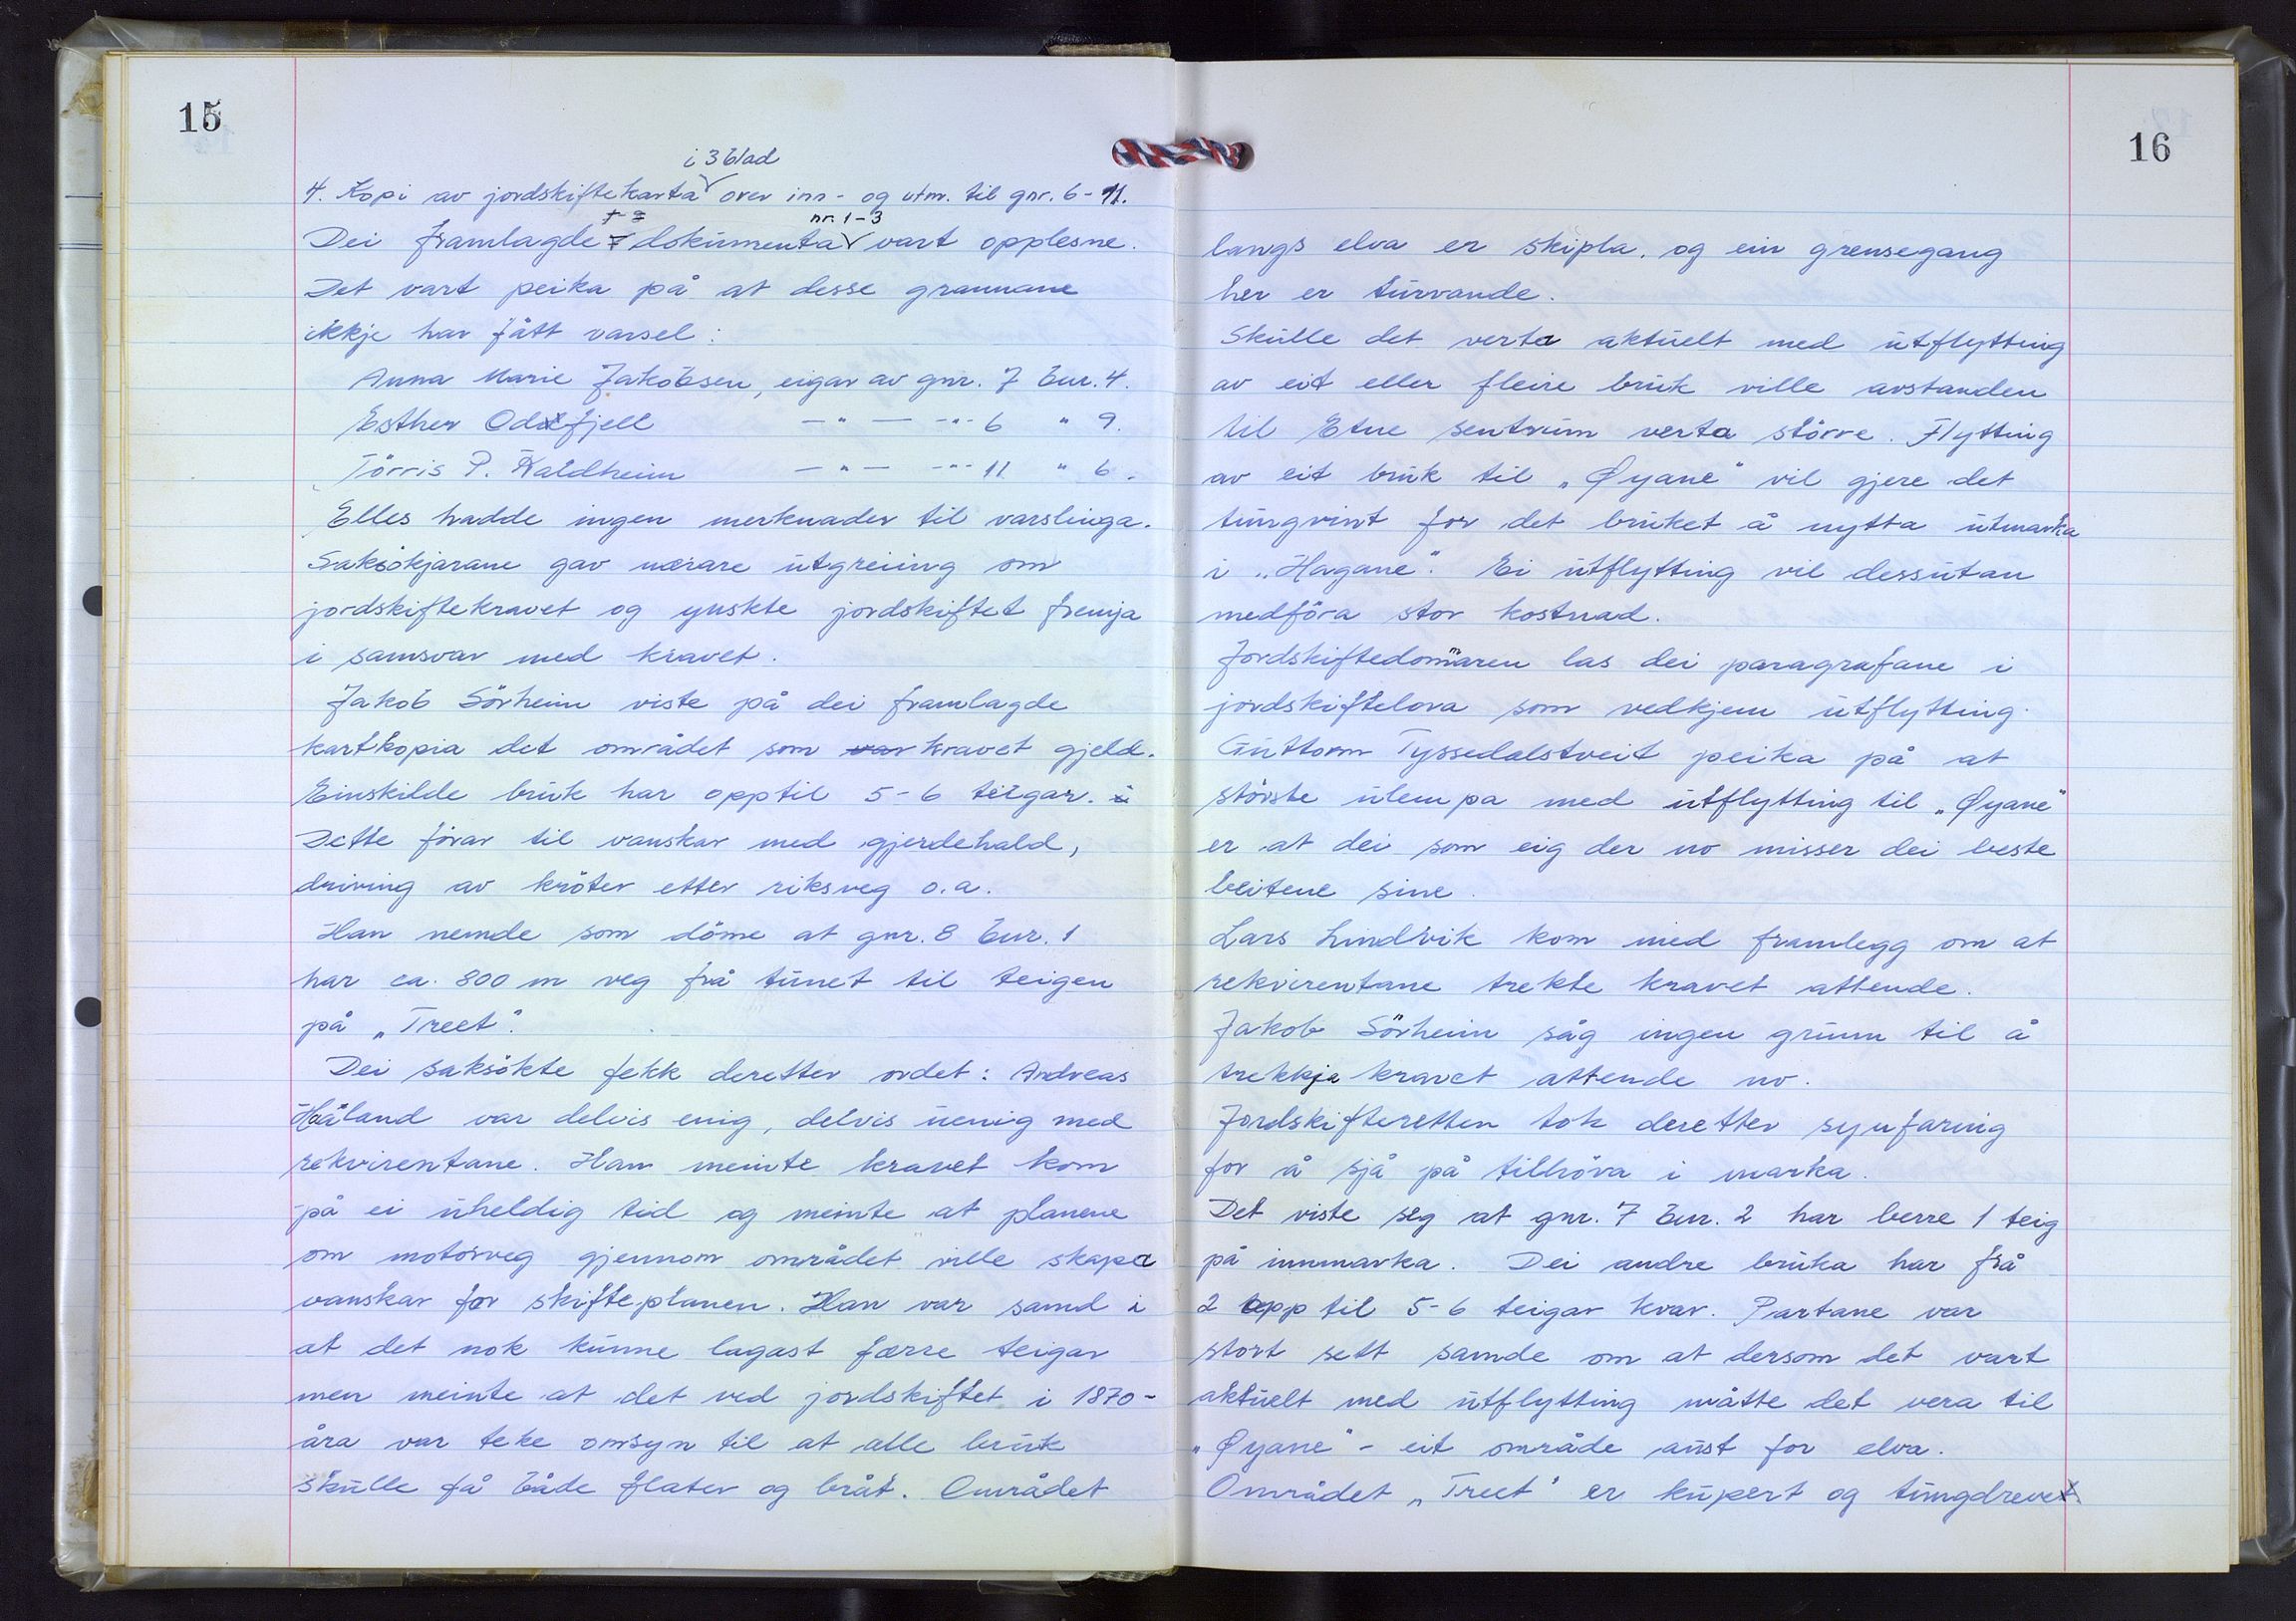 15
i 3 blad
4. Kopi av jordskiftekarta over inn- og utm. til gnr. 6-11.
nr. 1-3
Dei framlagde dokumenta vart opplesne.
Det vart peika på at desse grannane
ikkje har fått varsel:
Anna Marie Jakobsen, eigar av gnr. 7 bnr. 4.
Esther Odefjell — " — — " - 6 " 9.
Tørris P. Kaldheim — " — — " - 11 " 6.
Elles hadde ingen merknader til varslinga.
Saksökjarane gav nærare utgreiing om
jordskiftekravet og ynskte jordskiftet fremja
i samsvar med kravet.
Jakob Sörheim viste på dei framlagde
kartkopia det området som var kravet gjeld.
Einskilde bruk har opptil 5-6 teigar.
Dette förar til vanskar med gjerdehald,
driving av kröter etter riksveg o.a.
Han nemde som döme at gnr. 8 bnr. 1
har ca. 800 m veg frå tunet til teigen
på „Treet".
Dei saksökte fekk deretter ordet: Andreas
Håland var delvis enig, delvis uenig med
rekvirentane. Han meinte kravet kom
på ei uheldig tid og meinte at planene
om motorveg gjennom området ville skapa
vanskar for skifteplanen. Han var samd i
at det nok kunne lagast færre teigar
men meinte at det ved jordskiftet i 1870-
åra var teke omsyn til at alle bruk
skulle få både flater og bråt. Området
16
langs elva er skipla, og ein grensegang
her er turvande.
Skulle det verta aktuelt med utflytting
av eit eller fleire bruk ville avstanden
til Etne sentrum verta större. Flytting
av eit bruk til „Øyane" vil gjere det
tungvint for det bruket å nytta utmarka
i „Hagane". Ei utflytting vil dessutan
medföra stor kostnad.
Jordskiftedommaren las dei paragrafane i
jordskiftelova som vedkjem utflytting.
Guttorm Tyssedalstveit peika på at
största ulempa med utflytting til „Øyane"
er at dei som eig der no misser dei beste
beitene sine.
Lars Lindvik kom med framlegg om at
rekvirentane trekte kravet attende.
Jakob Sörheim såg ingen grunn til å
trekkja kravet attende no.
Jordskifteretten tok deretter synfaring
for å sjå på tilhöva i marka.
Det viste seg at gnr. 7 bnr. 2 har berre 1 teig
på innmarka. Dei andre bruka har frå
2 opp til 5-6 teigar kvar. Partane var
stort sett samde om at dersom det vart
aktuelt med utflytting måtte det vera til
„Øyane" - eit område aust for elva.
Området „Treet" er kupert og tungdreve.